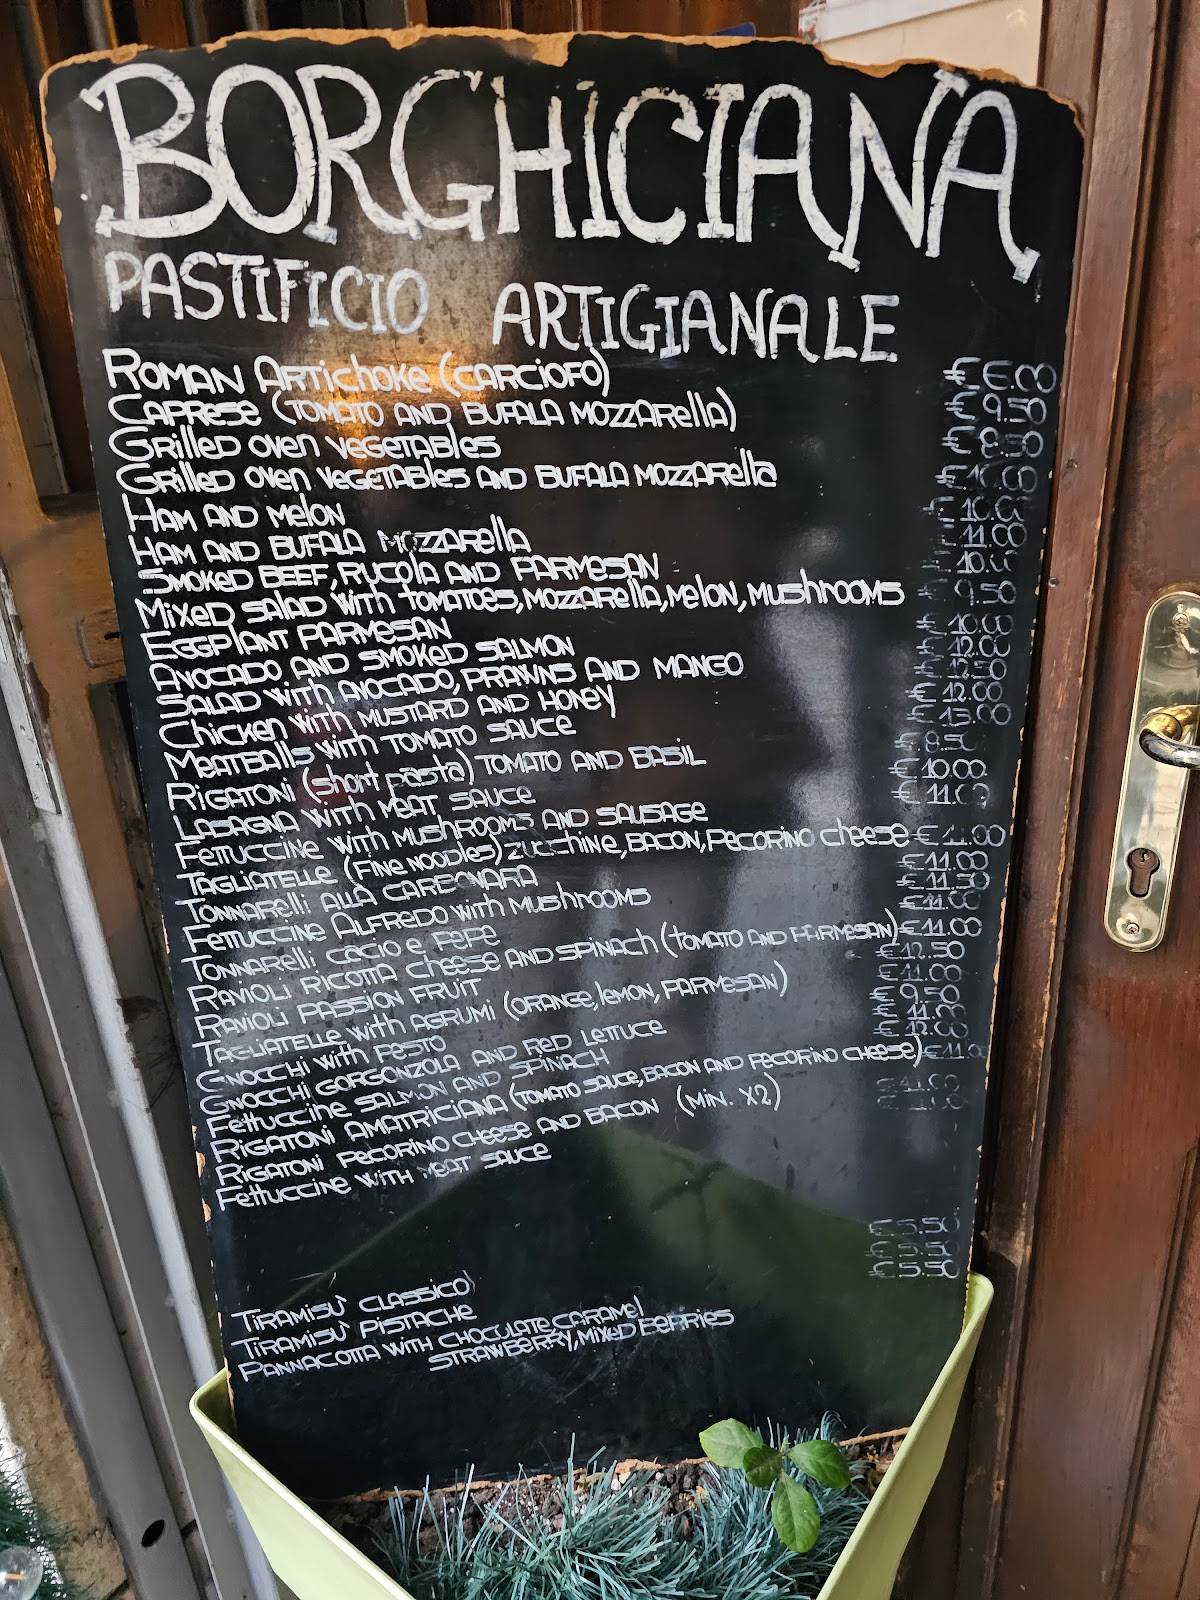 BORGHICIANA
PASTIFICIO ARTIGIANALE
ROMAN ARTICHOKE (CARCIOFO) € 6.00
CAPRESE (TOMATO AND BUFALA MOZZARELLA) € 9.50
GRILLED OVEN VEGETABLES € 8.50
GRILLED OVEN VEGETABLES AND BUFALA MOZZARELLA € 10.00
HAM AND MELON € 10.00
HAM AND BUFALA MOZZARELLA € 11.00
SMOKED BEEF, RUCOLA AND PARMESAN € 10.00
MIXED SALAD WITH TOMATOES, MOZZARELLA, MELON, MUSHROOMS € 9.50
EGGPLANT PARMESAN € 10.00
AVOCADO AND SMOKED SALMON € 12.00
SALAD WITH AVOCADO, PRAWNS AND MANGO € 12.50
CHICKEN WITH MUSTARD AND HONEY € 12.00
MEATBALLS WITH TOMATO SAUCE € 13.00
RIGATONI (SHORT PASTA) TOMATO AND BASIL € 8.50
LASAGNA WITH MEAT SAUCE € 10.00
FETTUCCINE WITH MUSHROOMS AND SAUSAGE € 11.00
TAGLIATELLE (FINE NOODLES) ZUCCHINE, BACON, PECORINO CHEESE € 11.00
TONNARELLI ALLA CARBONARA € 11.00
FETTUCCINE ALFREDO WITH MUSHROOMS € 11.50
TONNARELLI CACIO E PEPE € 11.00
RAVIOLI RICOTTA CHEESE AND SPINACH (TOMATO AND PARMESAN) € 11.00
RAVIOLI PASSION FRUIT € 12.50
TAGLIATELLE WITH AGRUMI (ORANGE, LEMON, PARMESAN) € 11.00
GNOCCHI WITH PESTO € 9.50
GNOCCHI GORGONZOLA AND RED LETTUCE € 11.00
FETTUCCINE SALMON AND SPINACH € 12.00
RIGATONI AMATRICIANA (TOMATO SAUCE, BACON AND PECORINO CHEESE) € 11.00
RIGATONI PECORINO CHEESE AND BACON (MIN. X2) € 11.00
FETTUCCINE WITH MEAT SAUCE
TIRAMISÙ CLASSICO € 5.50
TIRAMISÙ PISTACHE € 5.50
PANNACOTTA WITH CHOCOLATE CARAMEL € 5.50
STRAWBERRY, MIXED BERRIES